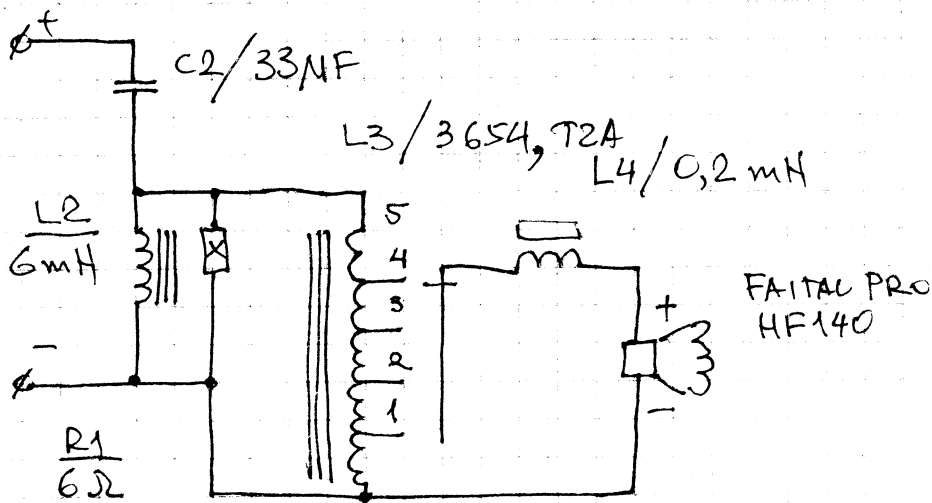 +
C2/33µF
L3/3654, T2A
L4/0,2 mH
L2
6mH
5
4
3
2
1
+
FAITAL PRO
HF140
-
-
R1
6Ω